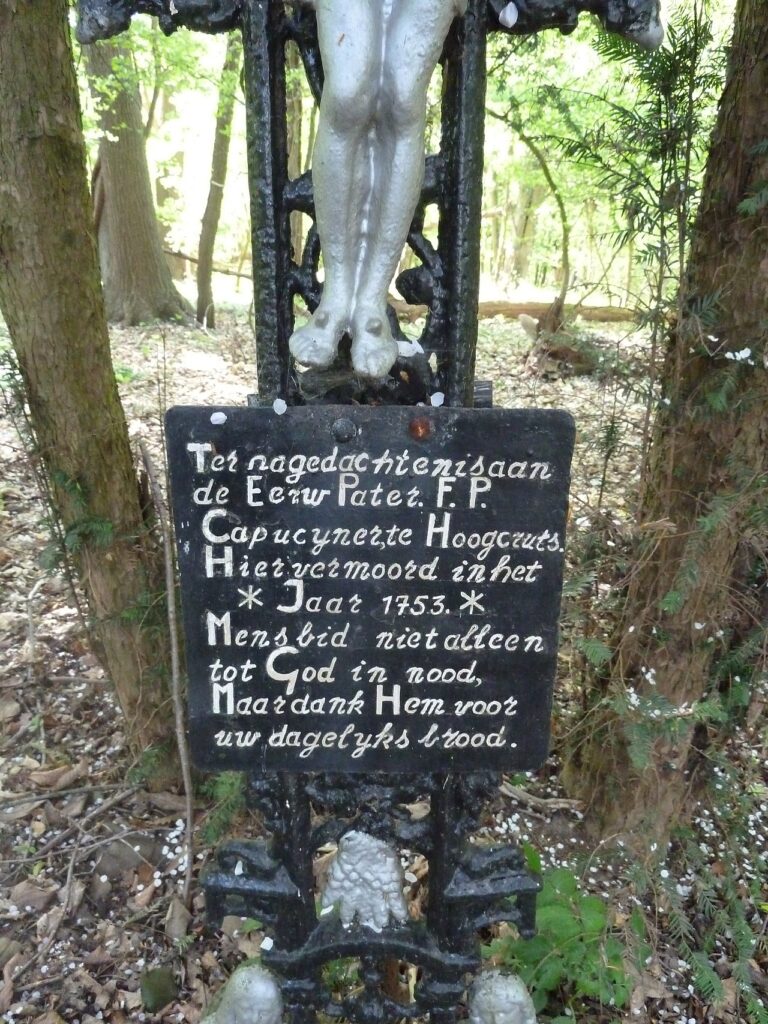 Ter nagedachtenisaan
de Eerw Pater. F. P.
Capucyner,te Hoogcruts.
Hier vermoord in het
* Jaar 1753. *
Mens bid niet alleen
tot God in nood,
Maar dank Hem voor
uw dagelyks brood.